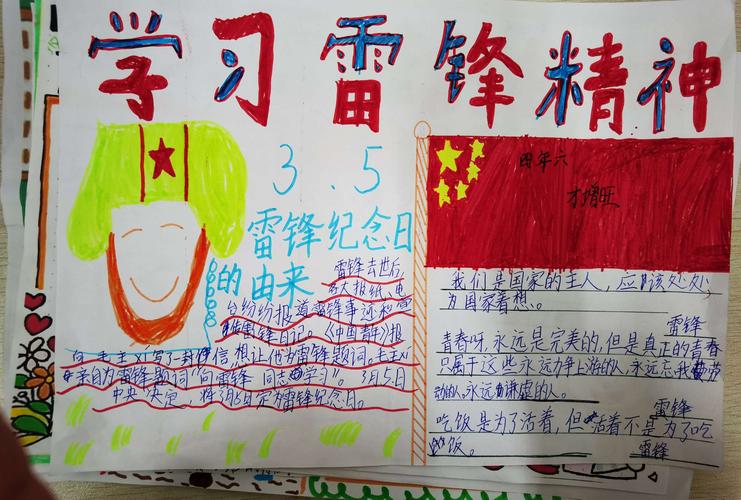 学习雷锋精神
3.5
雷锋纪念日
的由来
雷锋去世后,
各大报纸、电
台纷纷报道雷锋事迹和雷
锋日记。《中国青年》报
向毛主xi写了一封信想让他为雷锋题词。毛主xi
亲自为雷锋题词"向雷锋同志学习"。3月5日
中央决定,将3月5日定为雷锋纪念日。
四年六
才增旺
我们是国家的主人,应该处处
为国家着想。
雷锋
青春呀,永远是完美的,但是真正的青春
只属于这些永远力争上游的人,永远忘我劳
动的人,永远谦虚的人。
雷锋
吃饭是为了活着,但活着不是为了吃
饭。
雷锋